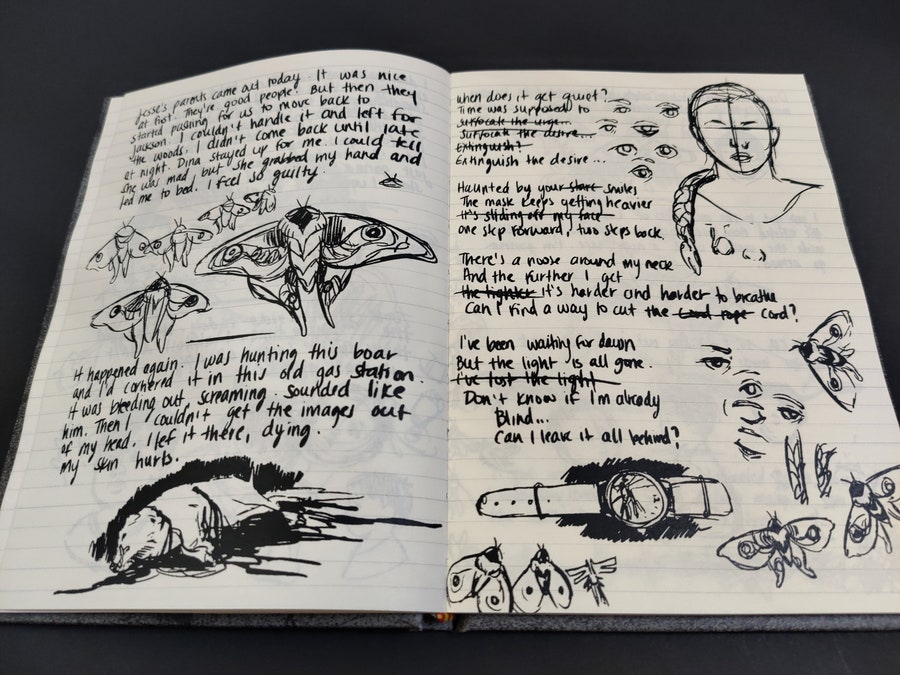 Jesse's parents came out today. It was nice
at first. They're good people. But then they
started pushing for us to move back to
Jackson. I couldn't handle it and left for
the woods. I didn't come back until late
at night. Dina stayed up for me. I could tell
she was mad, but she grabbed my hand and
led me to bed. I feel so guilty.
It happened again. I was hunting this boar
and I'd cornered it in this old gas station.
It was bleeding out, screaming. Sounded like
him. Then I couldn't get the images out
of my head. I lef it there, dying.
My skin hurts.
When does it get quiet?
Time was supposed to
suffocate the urge...
Suffocate the desire...
Extinguish?
Extinguish the desire...
Haunted by your stare smiles
The mask keeps getting heavier
It's sliding off my face
one step forward, two steps back.
There's a noose around my neck
And the further I get
the tighter it's harder and harder to breathe
Can I find a way to cut the cord rope cord?
I've been waiting for dawn
But the light is all gone.
I've lost the light
Don't know if I'm already
Blind...
Can I leave it all behind?